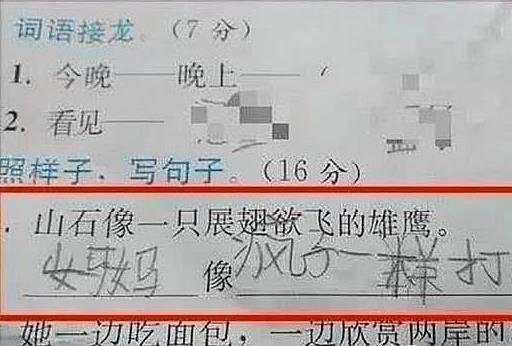 词语接龙。(7分)
1. 今晚——晚上——
2. 看见——
照样子,写句子。(16分)
. 山石像一只展翅欲飞的雄鹰。
妈妈像疯子一样打
她一边吃面包,一边欣赏两岸的